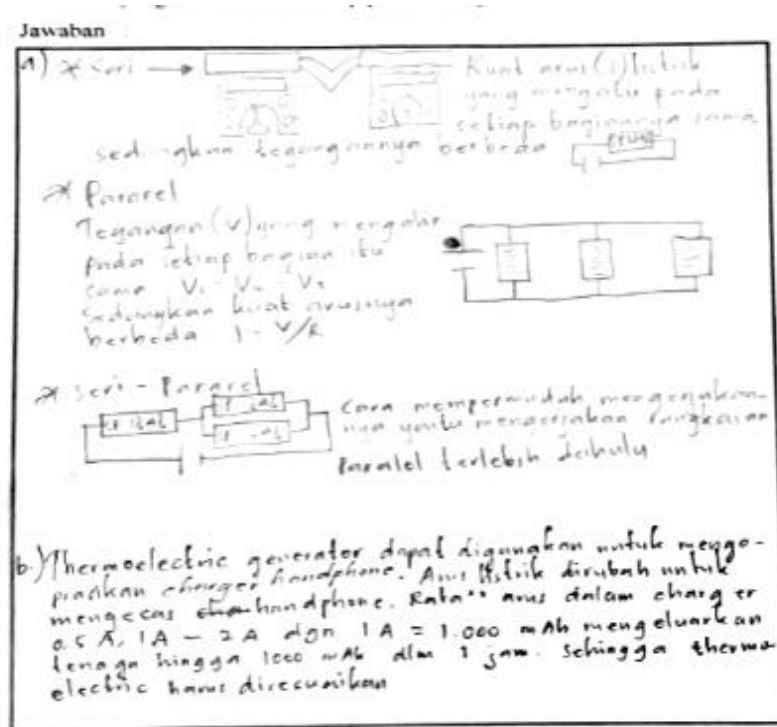 Jawaban
a) * Seri → Kuat arus (I) listrik
yang mengalir pada
setiap bagiannya sama
sedangkan tegangannya berbeda
* Pararel
Tegangan (V) yang mengalir
pada setiap bagian itu
sama V₁ = V₂ = V₃
Sedangkan kuat arusnya
berbeda I = V/R
* Seri - Pararel
Cara mempermudah mengerjakan-
nya yaitu mengerjakan rangkaian
Paralel terlebih dahulu
b.) Thermoelectric generator dapat digunakan untuk mengo-
prasikan charger handphone. Arus listrik dirubah untuk
mengecas handphone. Rata" arus dalam charger
0.5 A, 1A - 2A dgn 1A = 1.000 mAh mengeluarkan
tenaga hingga 1000 mAh dlm 1 jam. Sehingga thermo
electric harus disesuaikan